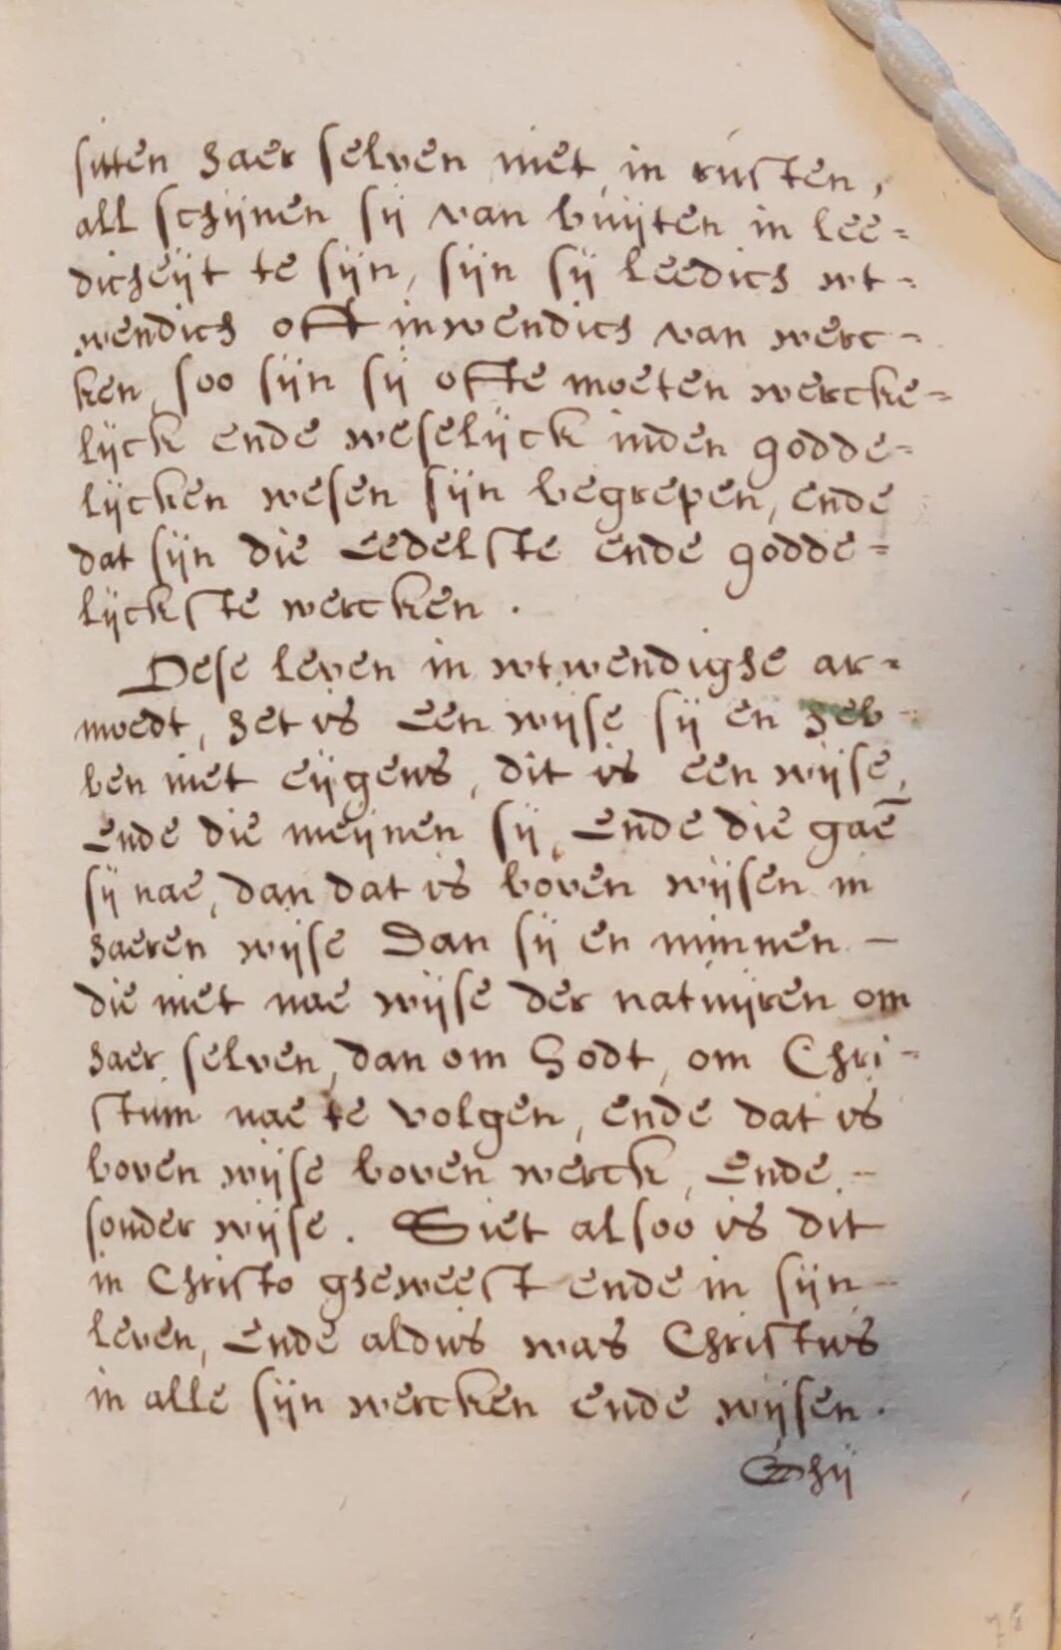 sitten haer selven niet in rusten,
all schijnen sij van buijten in lee=
dicheijt te sijn, sijn sij leedich wt=
wendich oft inwendich van werc=
ken, soo sijn sij ofte moeten wercke=
lijck ende weselijck inden godde=
lijcken wesen sijn begrepen, ende
dat sijn die Eedelste ende godde=
lijckste wercken.
Dese leven in wtwendighe ar=
moedt, het is Een wijse sij en heb=
ben niet eijgens, dit is een wijse,
Ende die meijnen sij, Ende die gaē
sij nae, dan dat is boven wijsen in
haeren wijse Dan sij en minnen –
die niet nae wijse der natuijren om
haer selven, dan om Godt, om Chri=
stum nae te volgen, ende dat is
boven wijse boven werck, Ende –
sonder wijse. Siet alsoo is dit
in Christo gheweest ende in sijn –
leven, Ende aldus was Christus
in alle sijn wercken ende wijsen.
Ghij
78